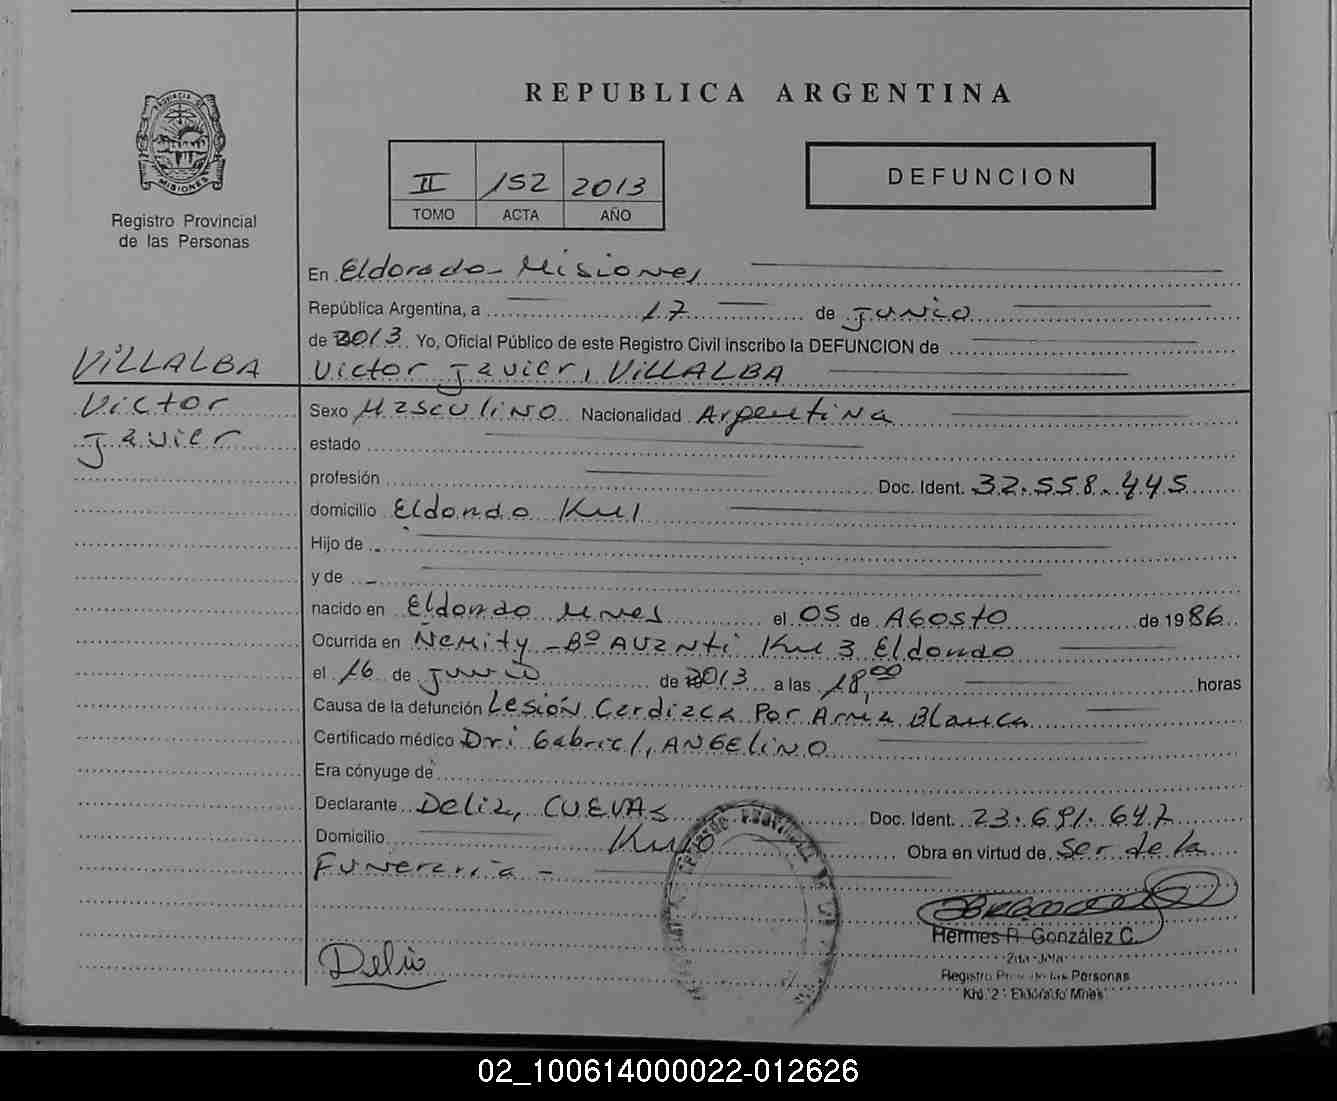 REPUBLICA ARGENTINA
PROVINCIA DE
MISIONES
Registro Provincial
de las Personas
II 152 2013
TOMO ACTA AÑO
DEFUNCION
En Eldorado - Misiones
República Argentina, a 17 de junio
de 2013. Yo, Oficial Público de este Registro Civil inscribo la DEFUNCION de
VILLALBA
Victor Javier, VILLALBA
Victor
Javier
Sexo Masculino Nacionalidad Argentina
estado
profesión Doc. Ident. 32.558.445
domicilio Eldorado Km 1
Hijo de
y de
nacido en Eldorado Mnes el 05 de AGOSTO de 1986
Ocurrida en Ñemity - Bº Avanti Km 3 Eldorado
el 16 de junio de 2013 a las 18,00 horas
Causa de la defunción Lesión Cardiaca Por Arma Blanca
Certificado médico Dr: Gabriel, ANGELINO
Era cónyuge de
Declarante Delia, CUEVAS Doc. Ident. 23.691.647
Domicilio Km 10 Obra en virtud de Ser de la
Funeraria -
Hermes R. González C.
2da. Jefa
Registro Prov. de las Personas
Km. 2 - Eldorado Mnes
Delia
02_100614000022-012626